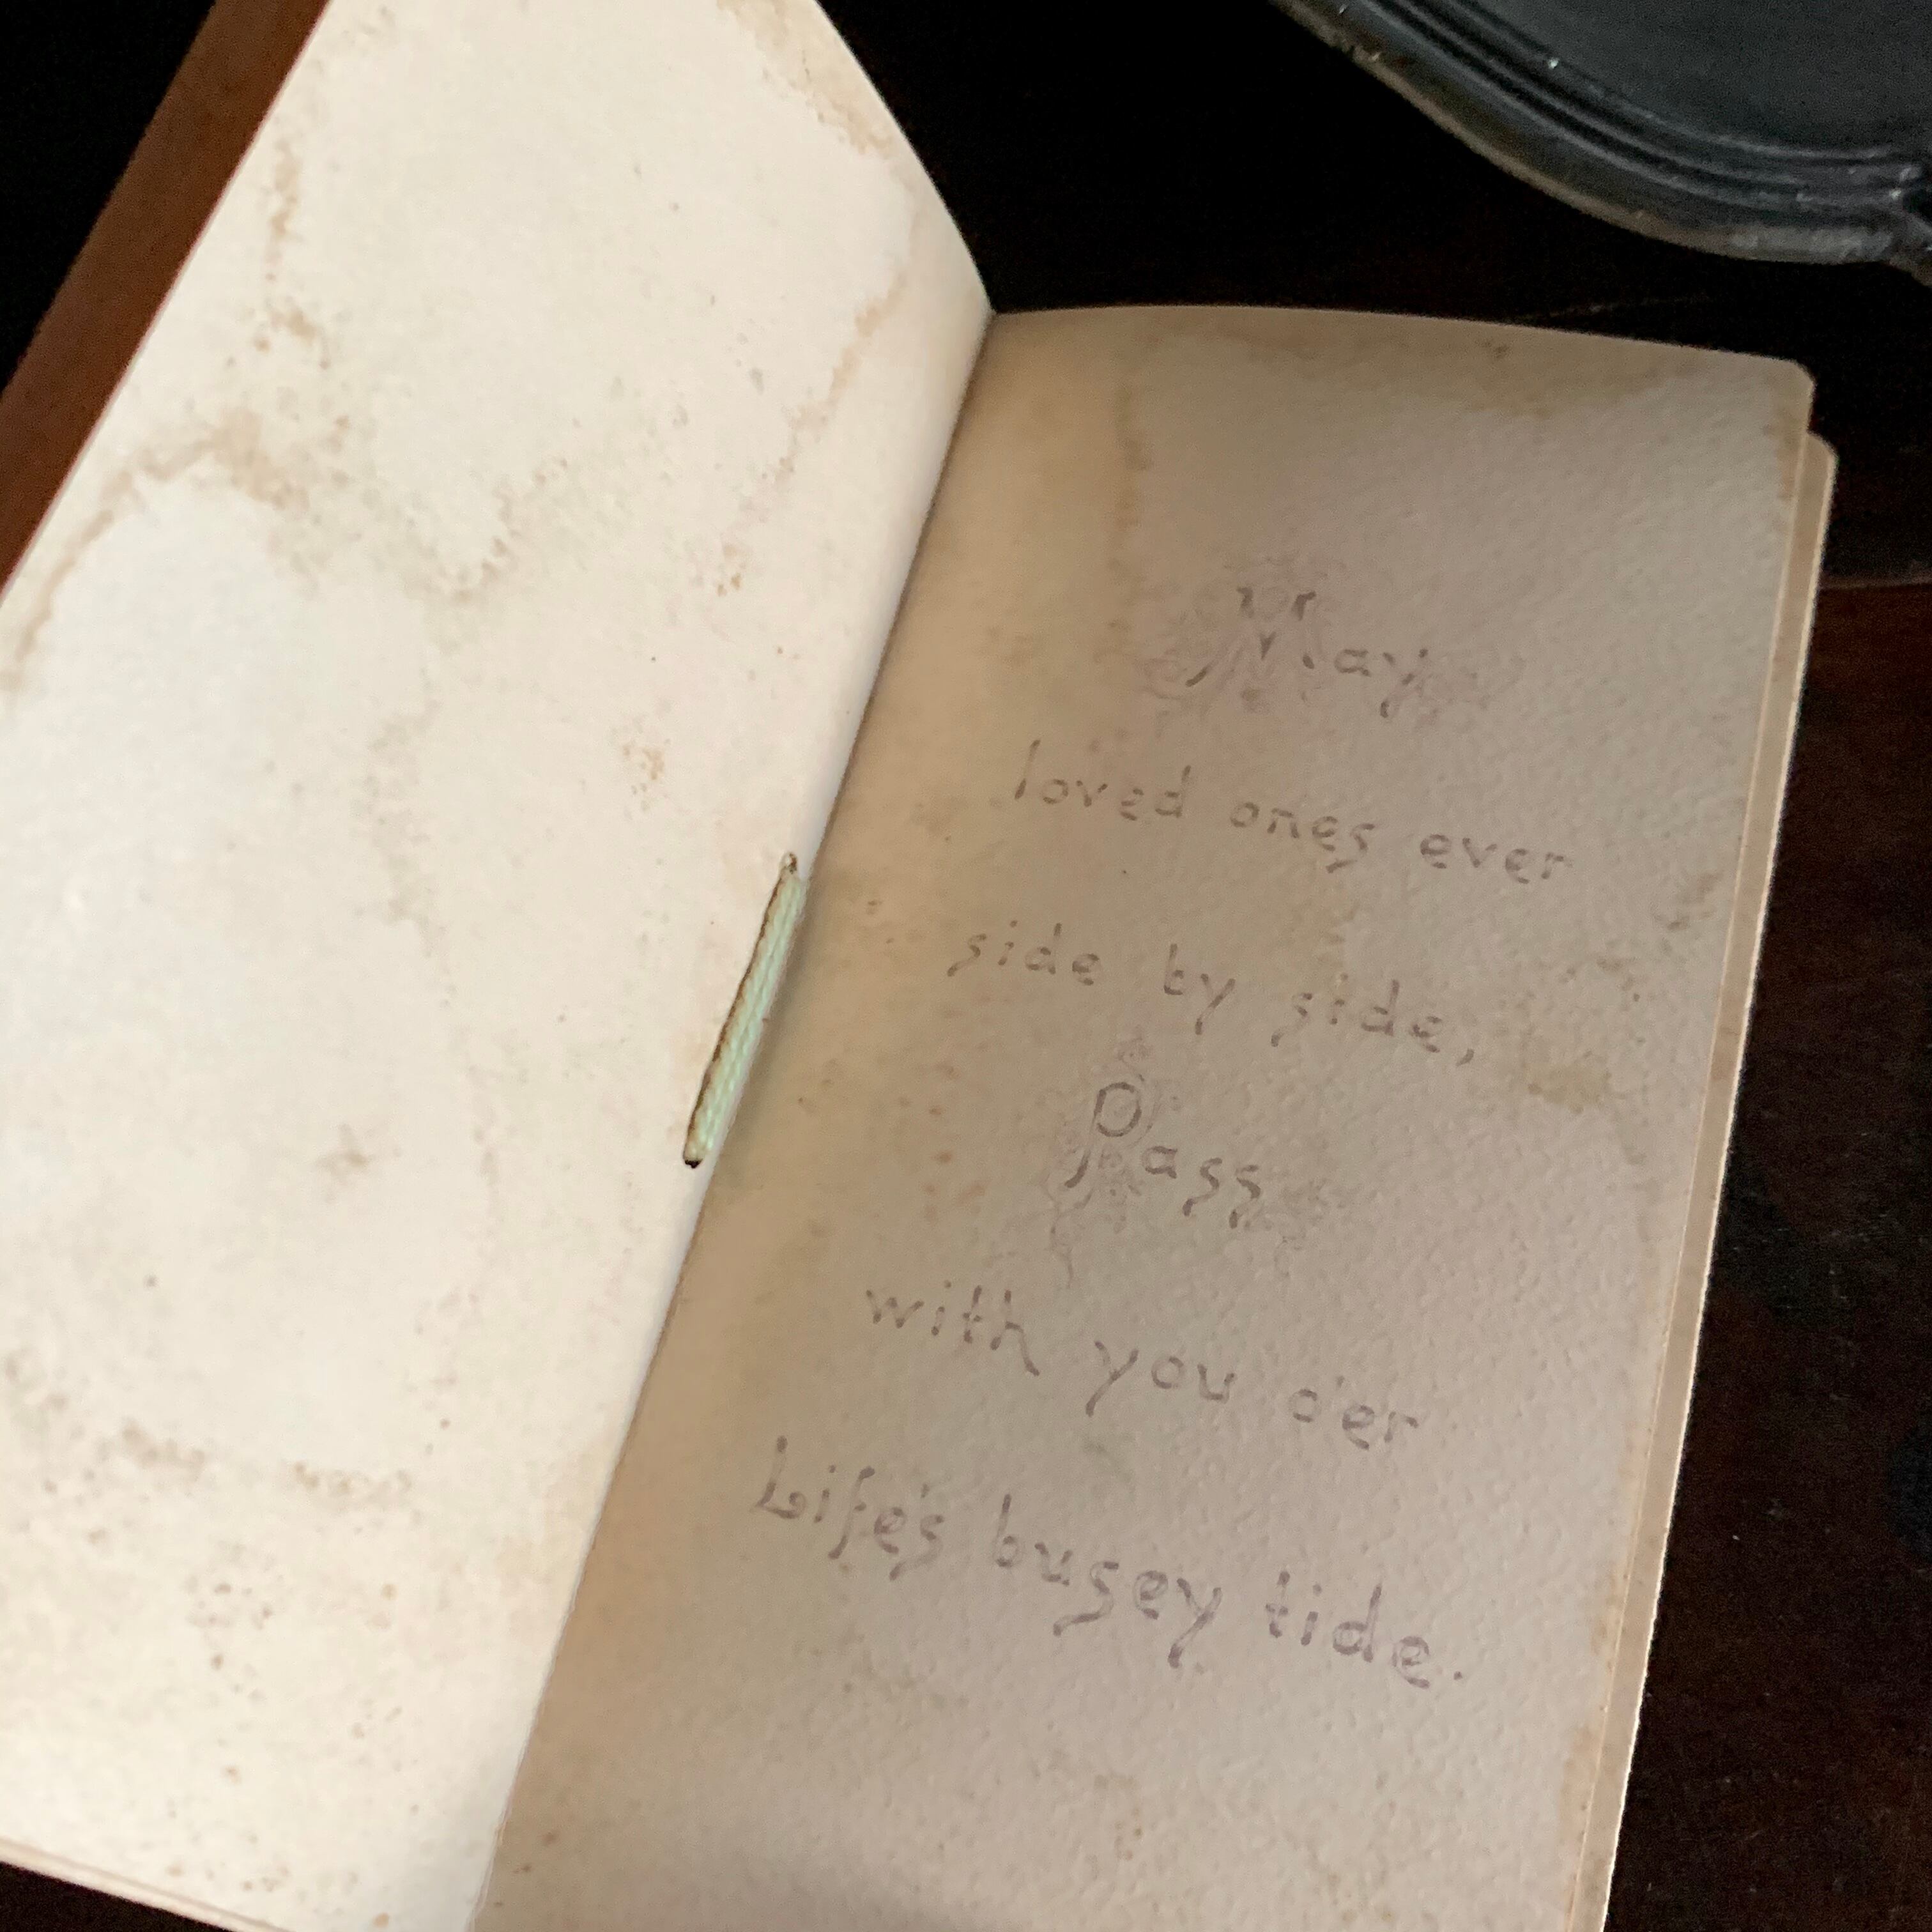 May
loved ones ever
side by side,
Pass
with you o'er
Life's busey tide.